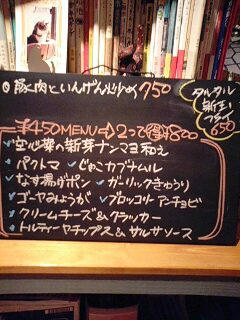 豚肉といんげん炒め 750
タルタル
新玉
フライ
650
¥450MENU⇒2つで得¥800
✓空心菜の新芽ナンマヨ和え
✓パクトマ ✓じゃこカブナムル
✓なす揚げポン ✓ガーリックきゅうり
✓ゴーヤみょうが ✓ブロッコリーアンチョビ
✓クリームチーズ&クラッカー
✓トルティーヤチップス&サルサソース